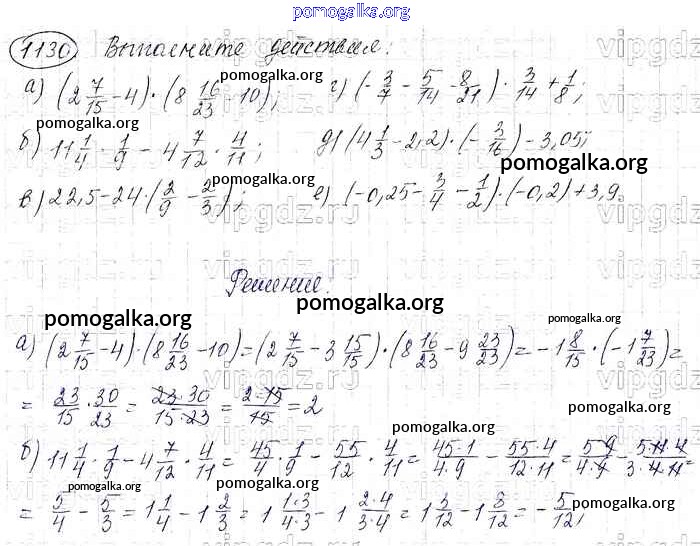 pomogalka.org
1130. Выполните действия:
а) (2 7/15 - 4) · (8 16/23 - 10); г) (- 3/7 - 5/14 - 8/21) · 3/14 + 1/8;
pomogalka.org
pomogalka.org
б) 11 1/4 · 1/9 - 4 7/12 · 4/11; д) (4 1/3 - 2,2) · (- 3/16) - 3,05;
pomogalka.org
в) 22,5 - 24 · (2/9 - 2/3); е) (-0,25 - 3/4 - 1/2) · (-0,2) + 3,9.
vipgdz.ru
Решение:
pomogalka.org
pomogalka.org
pomogalka.org
а) (2 7/15 - 4) · (8 16/23 - 10) = (2 7/15 - 3 15/15) · (8 16/23 - 9 23/23) = - 1 8/15 · (- 1 7/23) =
= 23/15 · 30/23 = 23·30/15·23 = 2·15/15 = 2
pomogalka.org
pomogalka.org
б) 11 1/4 · 1/9 - 4 7/12 · 4/11 = 45/4 · 1/9 - 55/12 · 4/11 = 45·1/4·9 - 55·4/12·11 = 5·9/4·9 - 5·11·4/3·4·11 =
pomogalka.org
pomogalka.org
pomogalka.org
= 5/4 - 5/3 = 1 1/4 - 1 2/3 = 1 1·3/4·3 - 1 2·4/3·4 = 1 3/12 - 1 8/12 = - 5/12;